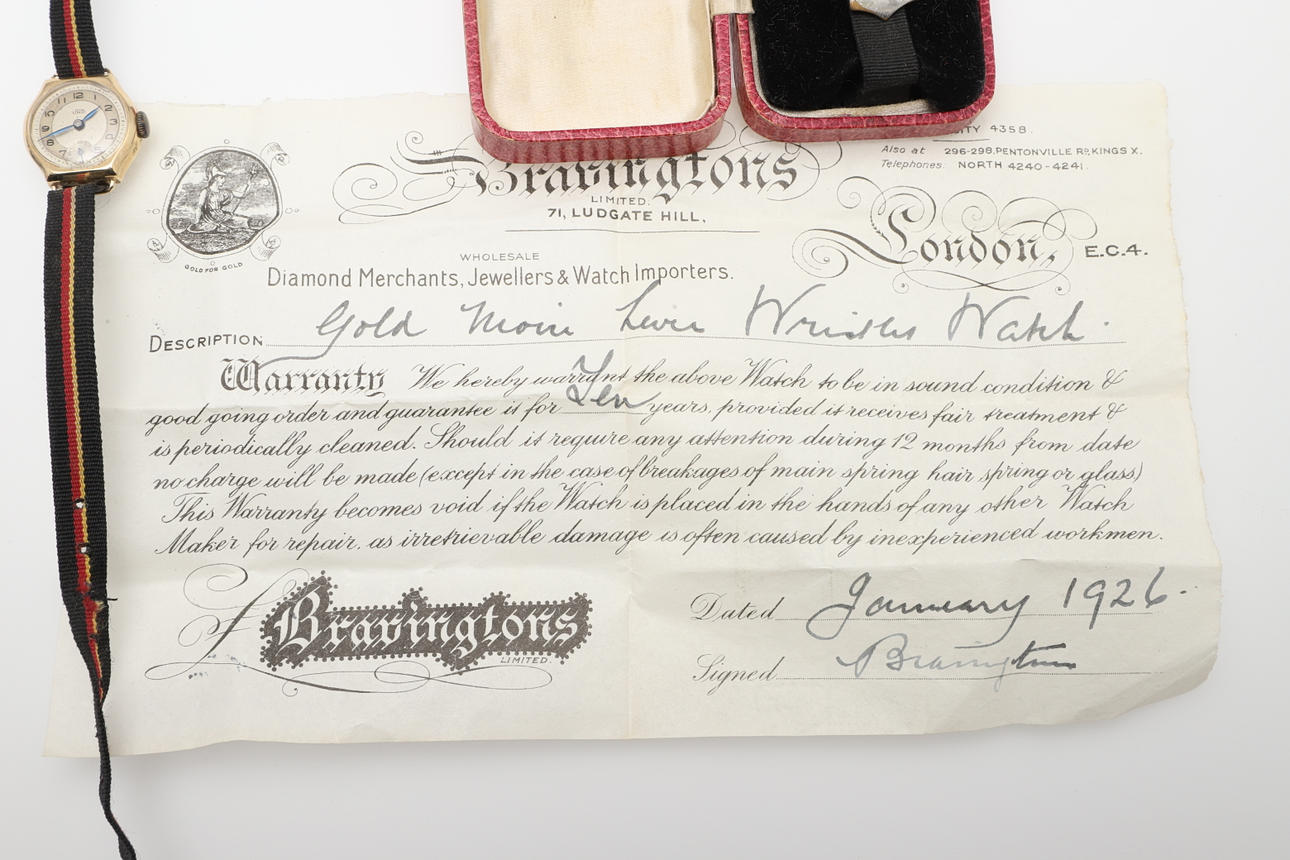 ITY 4358.
Also at 296-298, PENTONVILLE RD, KINGS X.
Telephones: NORTH 4240-4241.
Bravingtons
LIMITED.
71, LUDGATE HILL,
London, E.C.4.
GOLD FOR GOLD
WHOLESALE
Diamond Merchants, Jewellers & Watch Importers.
DESCRIPTION Gold Lever Wristlet Watch.
Warranty We hereby warrant the above Watch to be in sound condition &
good going order and guarantee it for Ten years, provided it receives fair treatment &
is periodically cleaned. Should it require any attention during 12 months from date
no charge will be made (except in the case of breakages of main spring hair spring or glass)
This Warranty becomes void if the Watch is placed in the hands of any other Watch
Maker for repair. as irretrievable damage is often caused by inexperienced workmen.
f Bravingtons
LIMITED.
Dated January 1926.
Signed Bravingtons
12 1 2 7 8 9 10 11